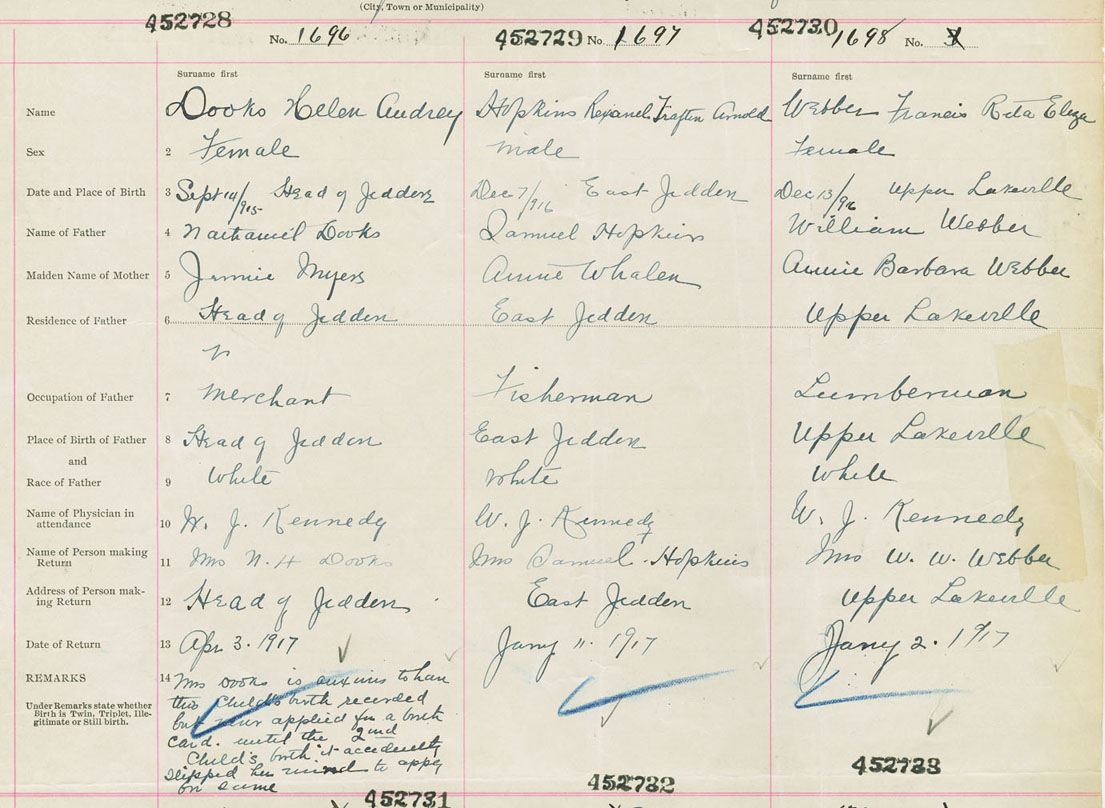 (City, Town or Municipality)
452728 No. 1696 452729 No. 1697 452730 1698 No. 3
Surname first Surname first Surname first
Name Dooks Helen Audrey Hopkins Trafton Arnold Webber Francis Rita Eleza
Sex 2 Female male Female
Date and Place of Birth 3 Sept 14/915 Head of Jeddore Dec 7/916 East Jeddore Dec 13/916 Upper Lakeville
Name of Father 4 Nathaniel Dooks Samuel Hopkins William Webber
Maiden Name of Mother 5 Jennie Myers Annie Whalen Annie Barbara Webber
Residence of Father 6 Head of Jeddore East Jeddore Upper Lakeville
Occupation of Father 7 Merchant Fisherman Lumberman
Place of Birth of Father 8 Head of Jeddore East Jeddore Upper Lakeville
and
Race of Father 9 White White White
Name of Physician in
attendance 10 W. J. Kennedy W. J. Kennedy W. J. Kennedy
Name of Person making
Return 11 Mrs N. H Dooks Mrs Samuel Hopkins Mrs W. W. Webber
Address of Person mak-
ing Return 12 Head of Jeddore East Jeddore Upper Lakeville
Date of Return 13 Apr 3. 1917 Jany 11. 1917 Jany 2. 1917
REMARKS 14 Mrs Dooks is anxious to have
Under Remarks state whether
Birth is Twin, Triplet, Ille-
gitimate or Still birth.
this Child's birth recorded
but never applied for a birth
Card. until the 2nd
Child's birth it accidently
slipped her mind to apply
for same
452731 452732 452733